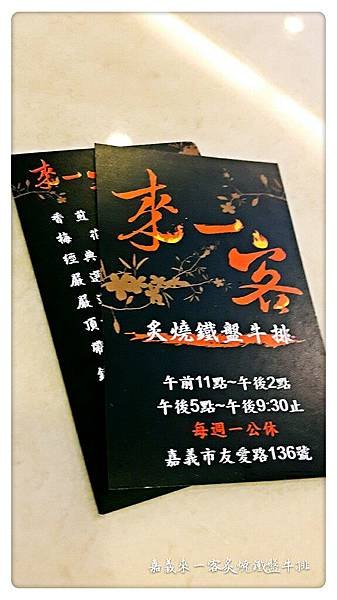 來一客
炙燒鐵盤牛排
午前11點~午後2點
午後5點~午後9:30止
每週一公休
嘉義市友愛路136號
來一客
煎花
香典
梅選
經
嚴
嚴
頂
帶
嘉義來一客炙燒鐵盤牛排